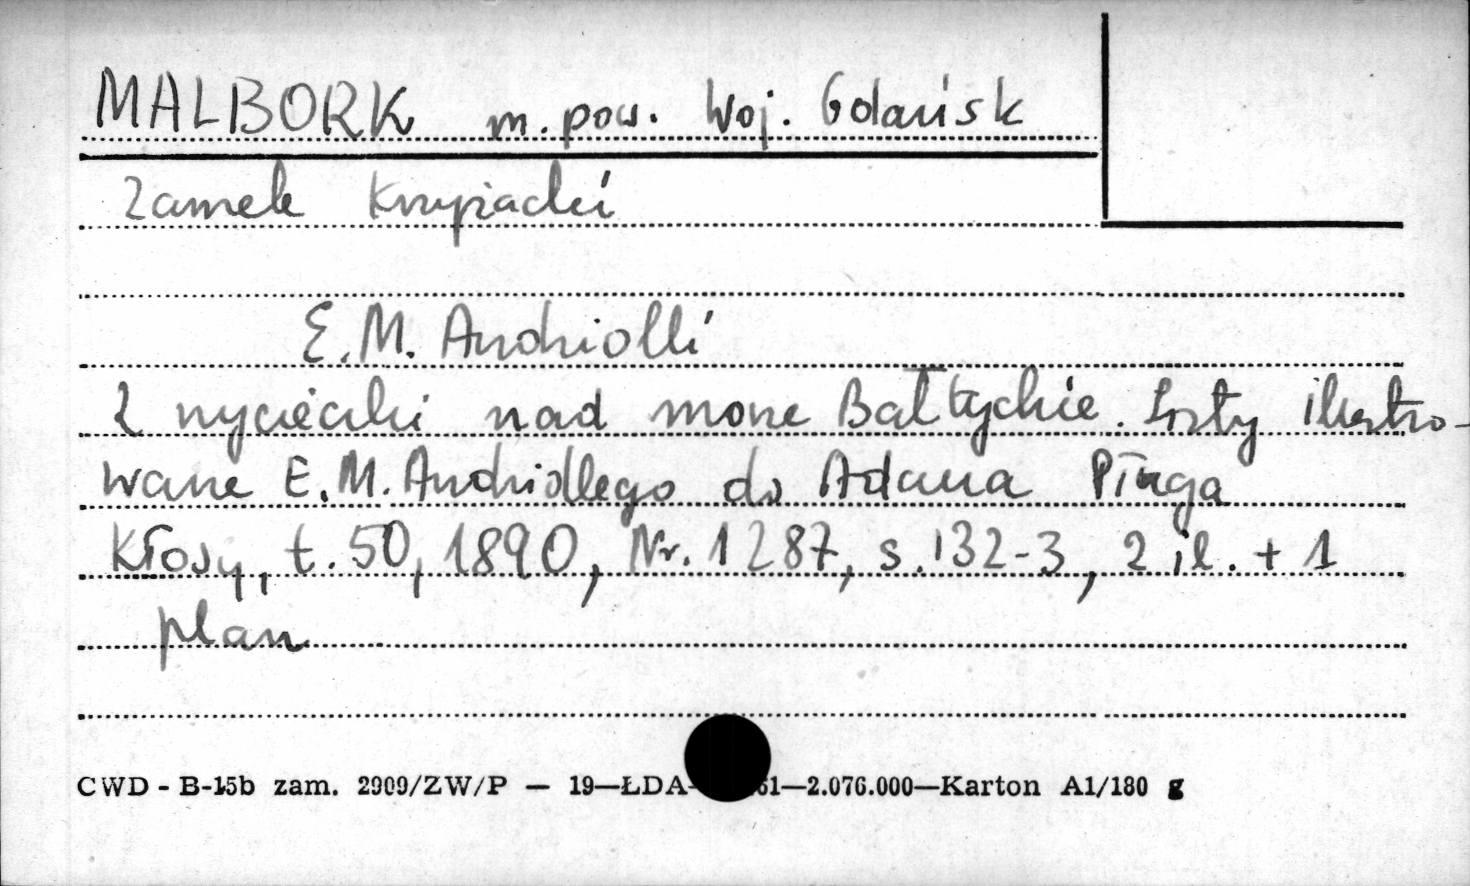 MALBORK m. pow. Woj. Gdańsk
Zamek Krzyżacki
E. M. Andriolli
Z wycieczki nad morze Bałtyckie. Listy ilustro-
wane E. M. Andriollego do Adama Pługa
Kłosy, t. 50, 1890, Nr. 1287, s. 132-3, 2 il. + 1
plan
CWD - B-15b zam. 2909/ZW/P — 19—ŁDA- 61—2.076.000—Karton A1/180 g